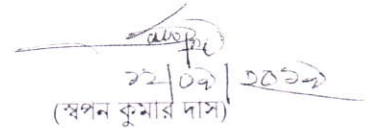 ১২|০৯|২০১৯
(স্বপন কুমার দাস)